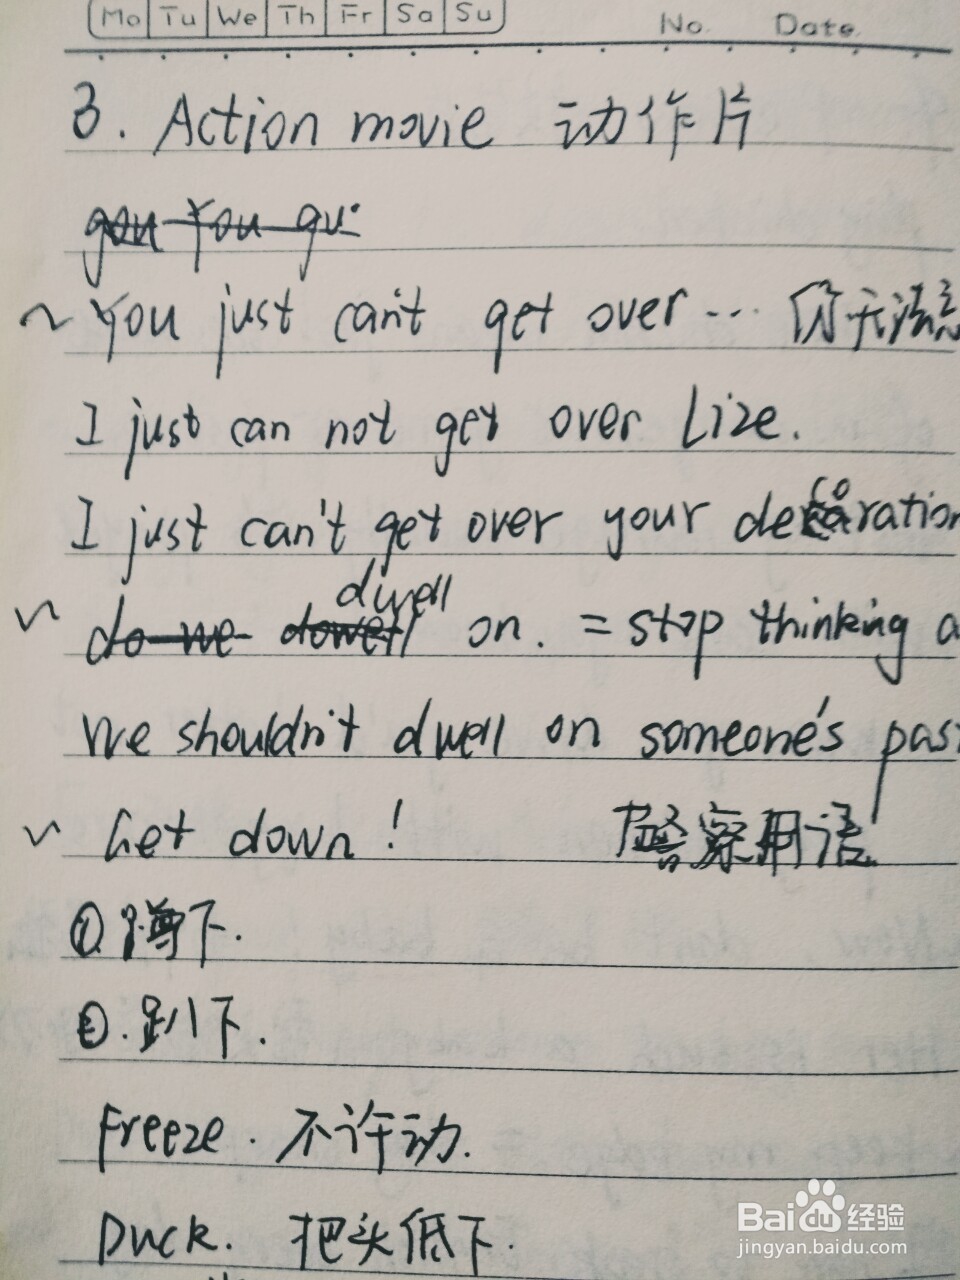 Mo Tu We Th Fr Sa Su No. Date.
3. Action movie 动作片
You gu
~ You just can't get over ... 你无法
I just can not get over Lize.
I just can't get over your decoration
do we dowell dwell on. = stop thinking a
We shouldn't dwell on someone's pas
Get down! 警察用语
①. 蹲下.
②. 趴下.
Freeze. 不许动.
Duck. 把头低下.
Baidu经验
jingyan.baidu.com